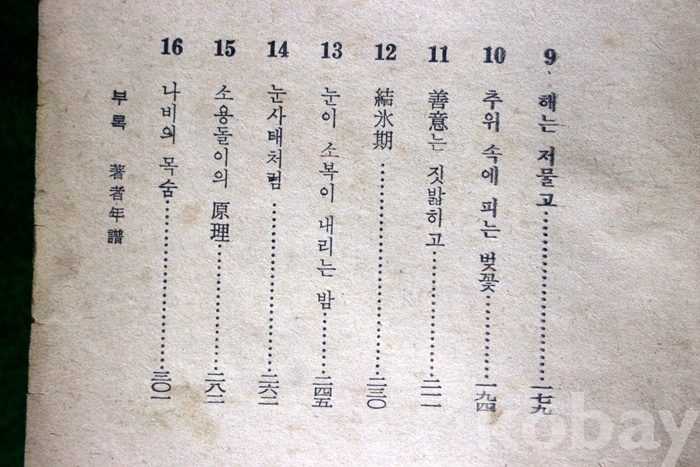 9 해는 저물고 一七九
10 추위 속에 피는 벚꽃 一九四
11 善意는 짓밟히고 二一一
12 結氷期 二三〇
13 눈이 소복이 내리는 밤 二四五
14 눈사태처럼 二六二
15 소용돌이의 原理 二八二
16 나비의 목숨 三〇一
부록 著者年譜
kobay